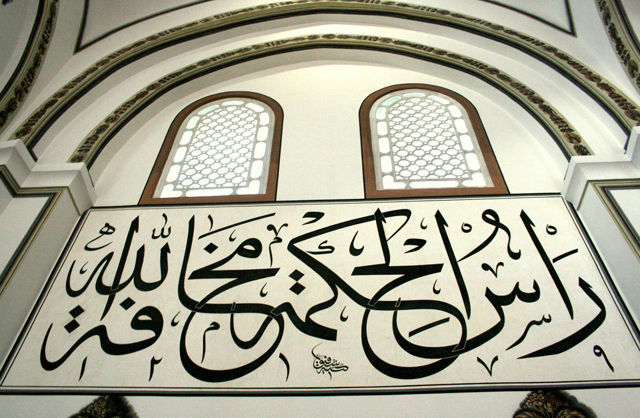 راس الحكمة مخافة الله